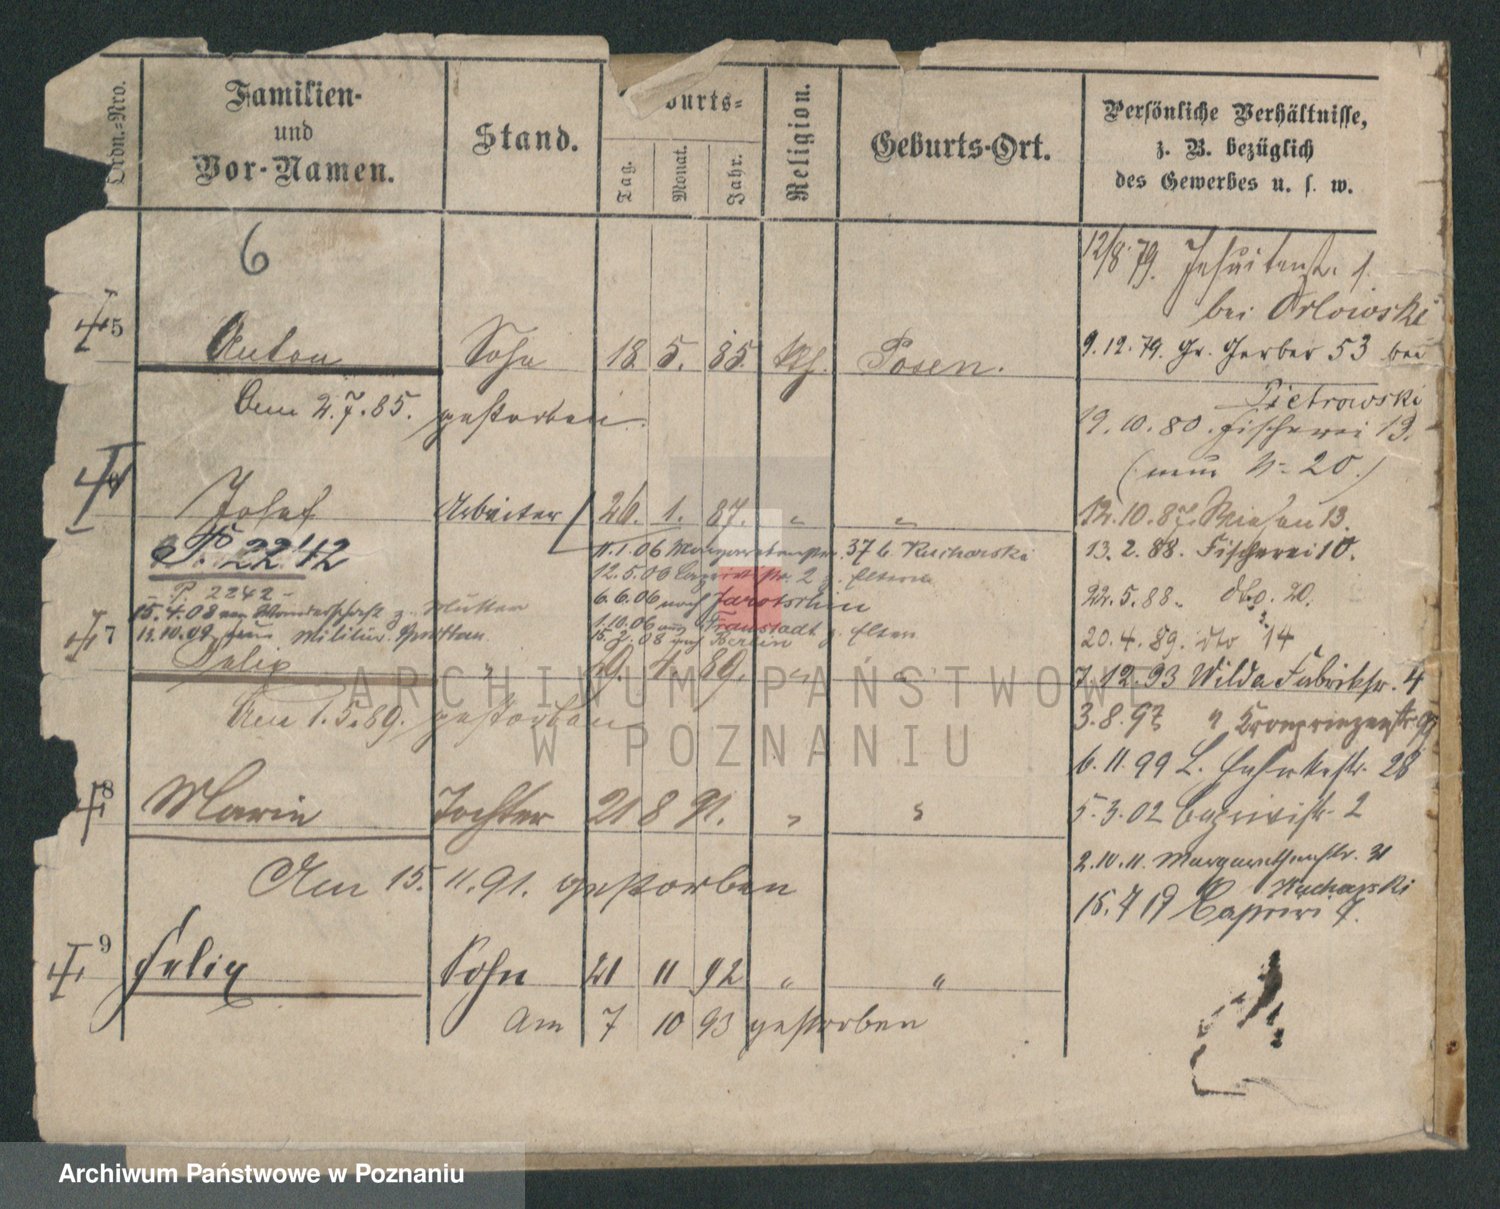 Ordn.-Nro.
Familien-
und
Vor-Namen.
Stand.
Geburts-
Tag.
Monat.
Jahr.
Religion.
Geburts-Ort.
Persönliche Verhältnisse,
z. B. bezüglich
des Gewerbes u. s. w.
6
5 Anton Sohn 18 5. 85. kth. Posen.
Am 2.7.85. gestorben
6 Josef Arbeiter 26. 1. 87. " "
P. 2242
P. 2242
11.1.06 Margarethenstr. 37 b. Kucharski
12.5.06 Caprivistr. 2 z. Eltern
6.6.06 nach Jarotschin
1.10.06 aus Fraustadt z. Eltern
15.2.08 nach Berlin
15.4.08 von Wanderschaft z. Mutter
zum Militär
7 Felix " 19. 4. 89. " "
Am 1.5.89. gestorben
8 Marie Tochter 21 8 91. " "
Am 15.11.91. gestorben
9 Felix Sohn 21 11 92 " "
Am 7 10 93 gestorben
12/8.79. Jesuitenstr. 1.
bei Orlowski
9.12.79. Gr. Gerber 53 bei
Pietrowski
19.10.80. Fischerei 13.
(neue N= 20.)
12.10.87. Wiesen 13.
13.2.88. Fischerei 10.
22.5.88. dto. 20.
20.4.89. dto 14
7.12.93 Wilda Fabrikstr. 4
3.8.97 " Kronprinzenstr.
6.11.99 28
5.3.02 Caprivistr. 2
2.10.11. Margarethenstr. 31
Kucharski
15.4 19 Caprivi 4.
ARCHIWUM PAŃSTWOWE
W POZNANIU
Archiwum Państwowe w Poznaniu